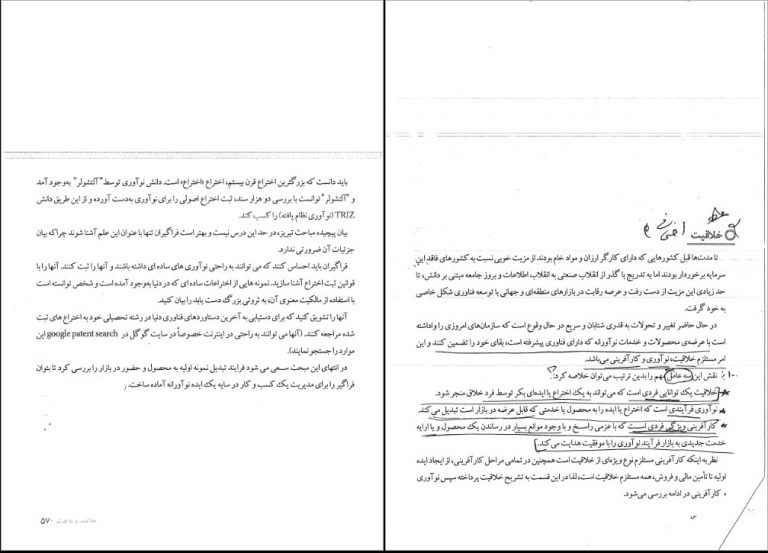 خلاقیت
تا مدت‌ها قبل کشورهایی که دارای کارگر ارزان و مواد خام بودند از مزیت خوبی نسبت به کشورهای فاقد این
سرمایه برخوردار بودند اما به تدریج با گذر از انقلاب صنعتی به انقلاب اطلاعات و بروز جامعه مبتنی بر دانش، تا
حد زیادی این مزیت از دست رفت و عرصه رقابت در بازارهای منطقه‌ای و جهانی با توسعه فناوری شکل خاصی
به خود گرفت.
در حال حاضر تغییر و تحولات به قدری شتابان و سریع در حال وقوع است که سازمان‌های امروزی را واداشته
است با عرضه‌ی محصولات و خدمات نوآورانه که دارای فناوری پیشرفته است، بقای خود را تضمین کنند و این
امر مستلزم خلاقیت، نوآوری و کارآفرینی می‌باشد.
نقش این سه عامل مهم را بدین ترتیب می‌توان خلاصه کرد:
خلاقیت یک توانایی فردی است که می‌تواند به یک اختراع یا ایده‌ای بکر توسط فرد خلاق منجر شود.
نوآوری فرآیندی است که اختراع یا ایده را به محصول یا خدمتی که قابل عرضه در بازار است تبدیل می‌کند.
کارآفرینی ویژگی فردی است که با عزمی راسخ و با وجود موانع بسیار در رساندن یک محصول و یا ارایه
خدمت جدیدی به بازار فرآیند نوآوری را با موفقیت هدایت می‌کند.
نظر به اینکه کارآفرینی مستلزم نوع ویژه‌ای از خلاقیت است همچنین در تمامی مراحل کارآفرینی، از ایجاد ایده
اولیه تا تأمین مالی و فروش، همه مستلزم خلاقیت است، لذا در این قسمت به تشریح خلاقیت پرداخته سپس نوآوری
و کارآفرینی در ادامه بررسی می‌شود.
باید دانست که بزرگترین اختراع قرن بیستم، اختراع «اختراع» است. دانش نوآوری توسط "آلتشولر" به‌وجود آمد
و "آلتشولر" توانست با بررسی دو هزار سند، ثبت اختراع اصولی را برای نوآوری به‌دست آورده و از این طریق دانش
TRIZ (نوآوری نظام یافته) را کسب کند.
بیان پیچیده مباحث تیریز، در حد این درس نیست و بهتر است فراگیران تنها با عنوان این علم آشنا شوند چراکه بیان
جزئیات آن ضرورتی ندارد.
فراگیران باید احساس کنند که می توانند به راحتی نوآوری های ساده ای داشته باشند و آنها را ثبت کنند. آنها را با
قوانین ثبت اختراع آشنا سازید. نمونه هایی از اختراعات ساده ای که در دنیا به‌وجود آمده است و شخص توانسته است
با استفاده از مالکیت معنوی آن، به ثروتی بزرگ دست یابد را بیان کنید.
آنها را تشویق کنید که برای دستیابی به آخرین دستاوردهای فناوری دنیا در رشته تحصیلی خود به اختراع های ثبت
شده مراجعه کنند. (آنها می توانند به راحتی در اینترنت خصوصاً در سایت گوگل در google patent search این
موارد را جستجو نمایند).
در انتهای این مبحث سعی می شود فرایند تبدیل نمونه اولیه به محصول و حضور در بازار را بررسی کرد تا بتوان
فراگیر را برای مدیریت یک کسب و کار در سایه یک ایده نوآورانه آماده ساخت.
خلاقیت و نوآوری ۵۷